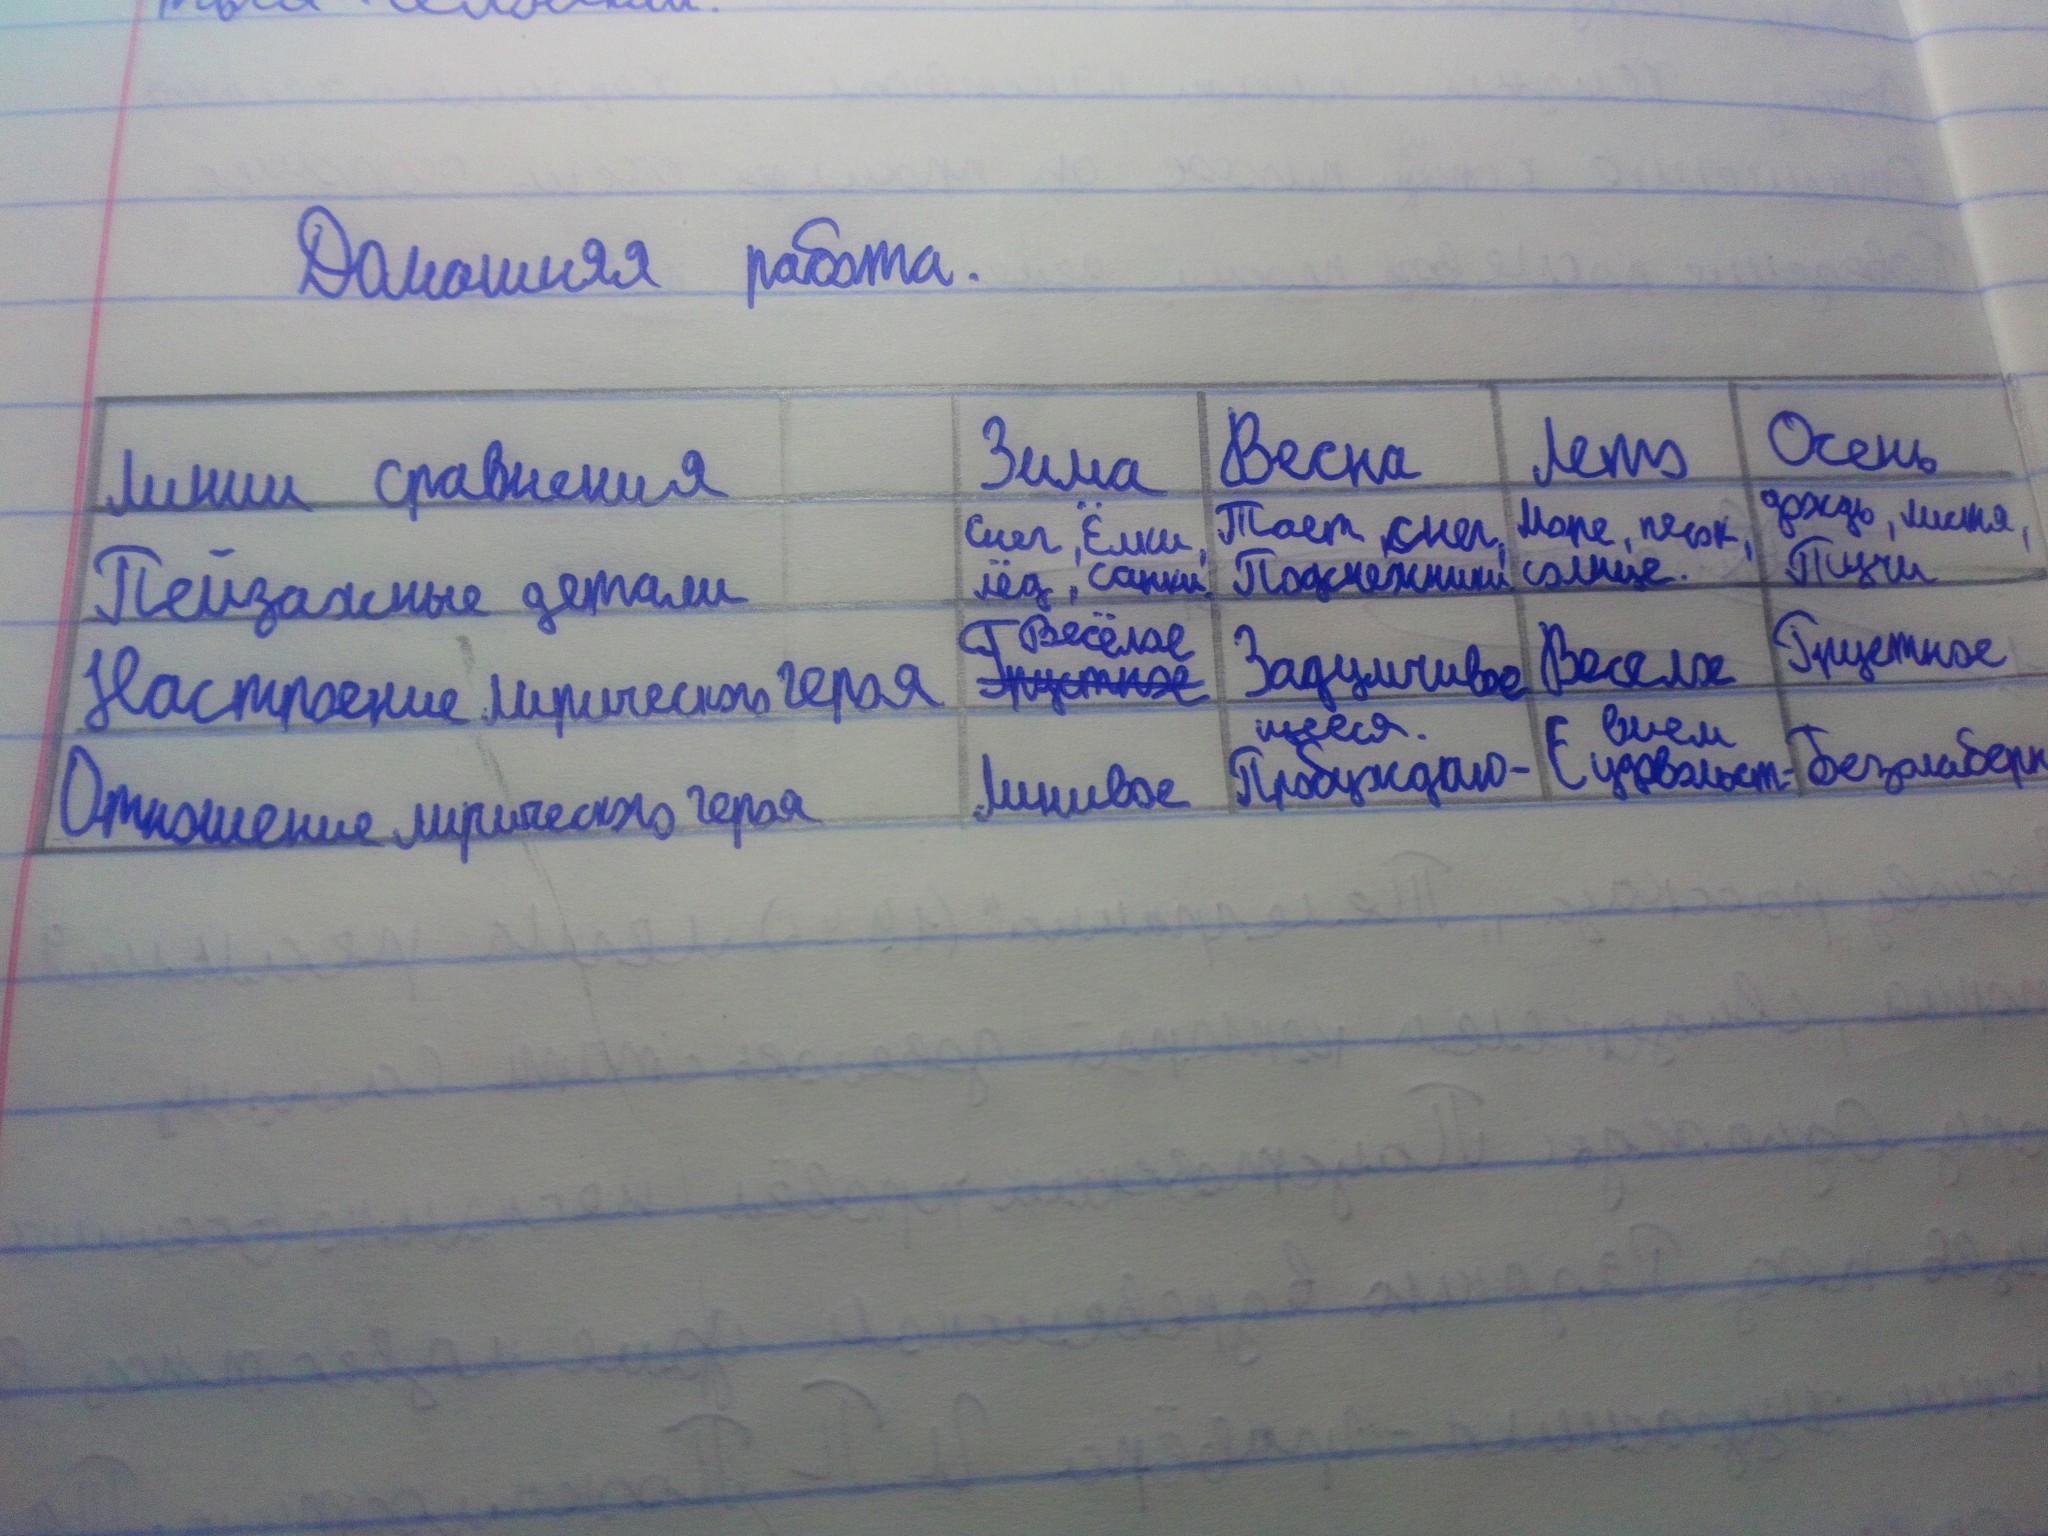 Домашняя работа.
Линии сравнения Зима Весна Лето Осень
Пейзажные детали Снег, Ёлки, лёд, санки. Тает снег, Подснежники Море, песок, солнце. дождь, листья, Тучи
Настроение лирического героя Весёлое Задумчивое Веселое Грустное
Отношение лирического героя Линивое Пробуждаю-щееся. С удовольст-вием Безолаберн